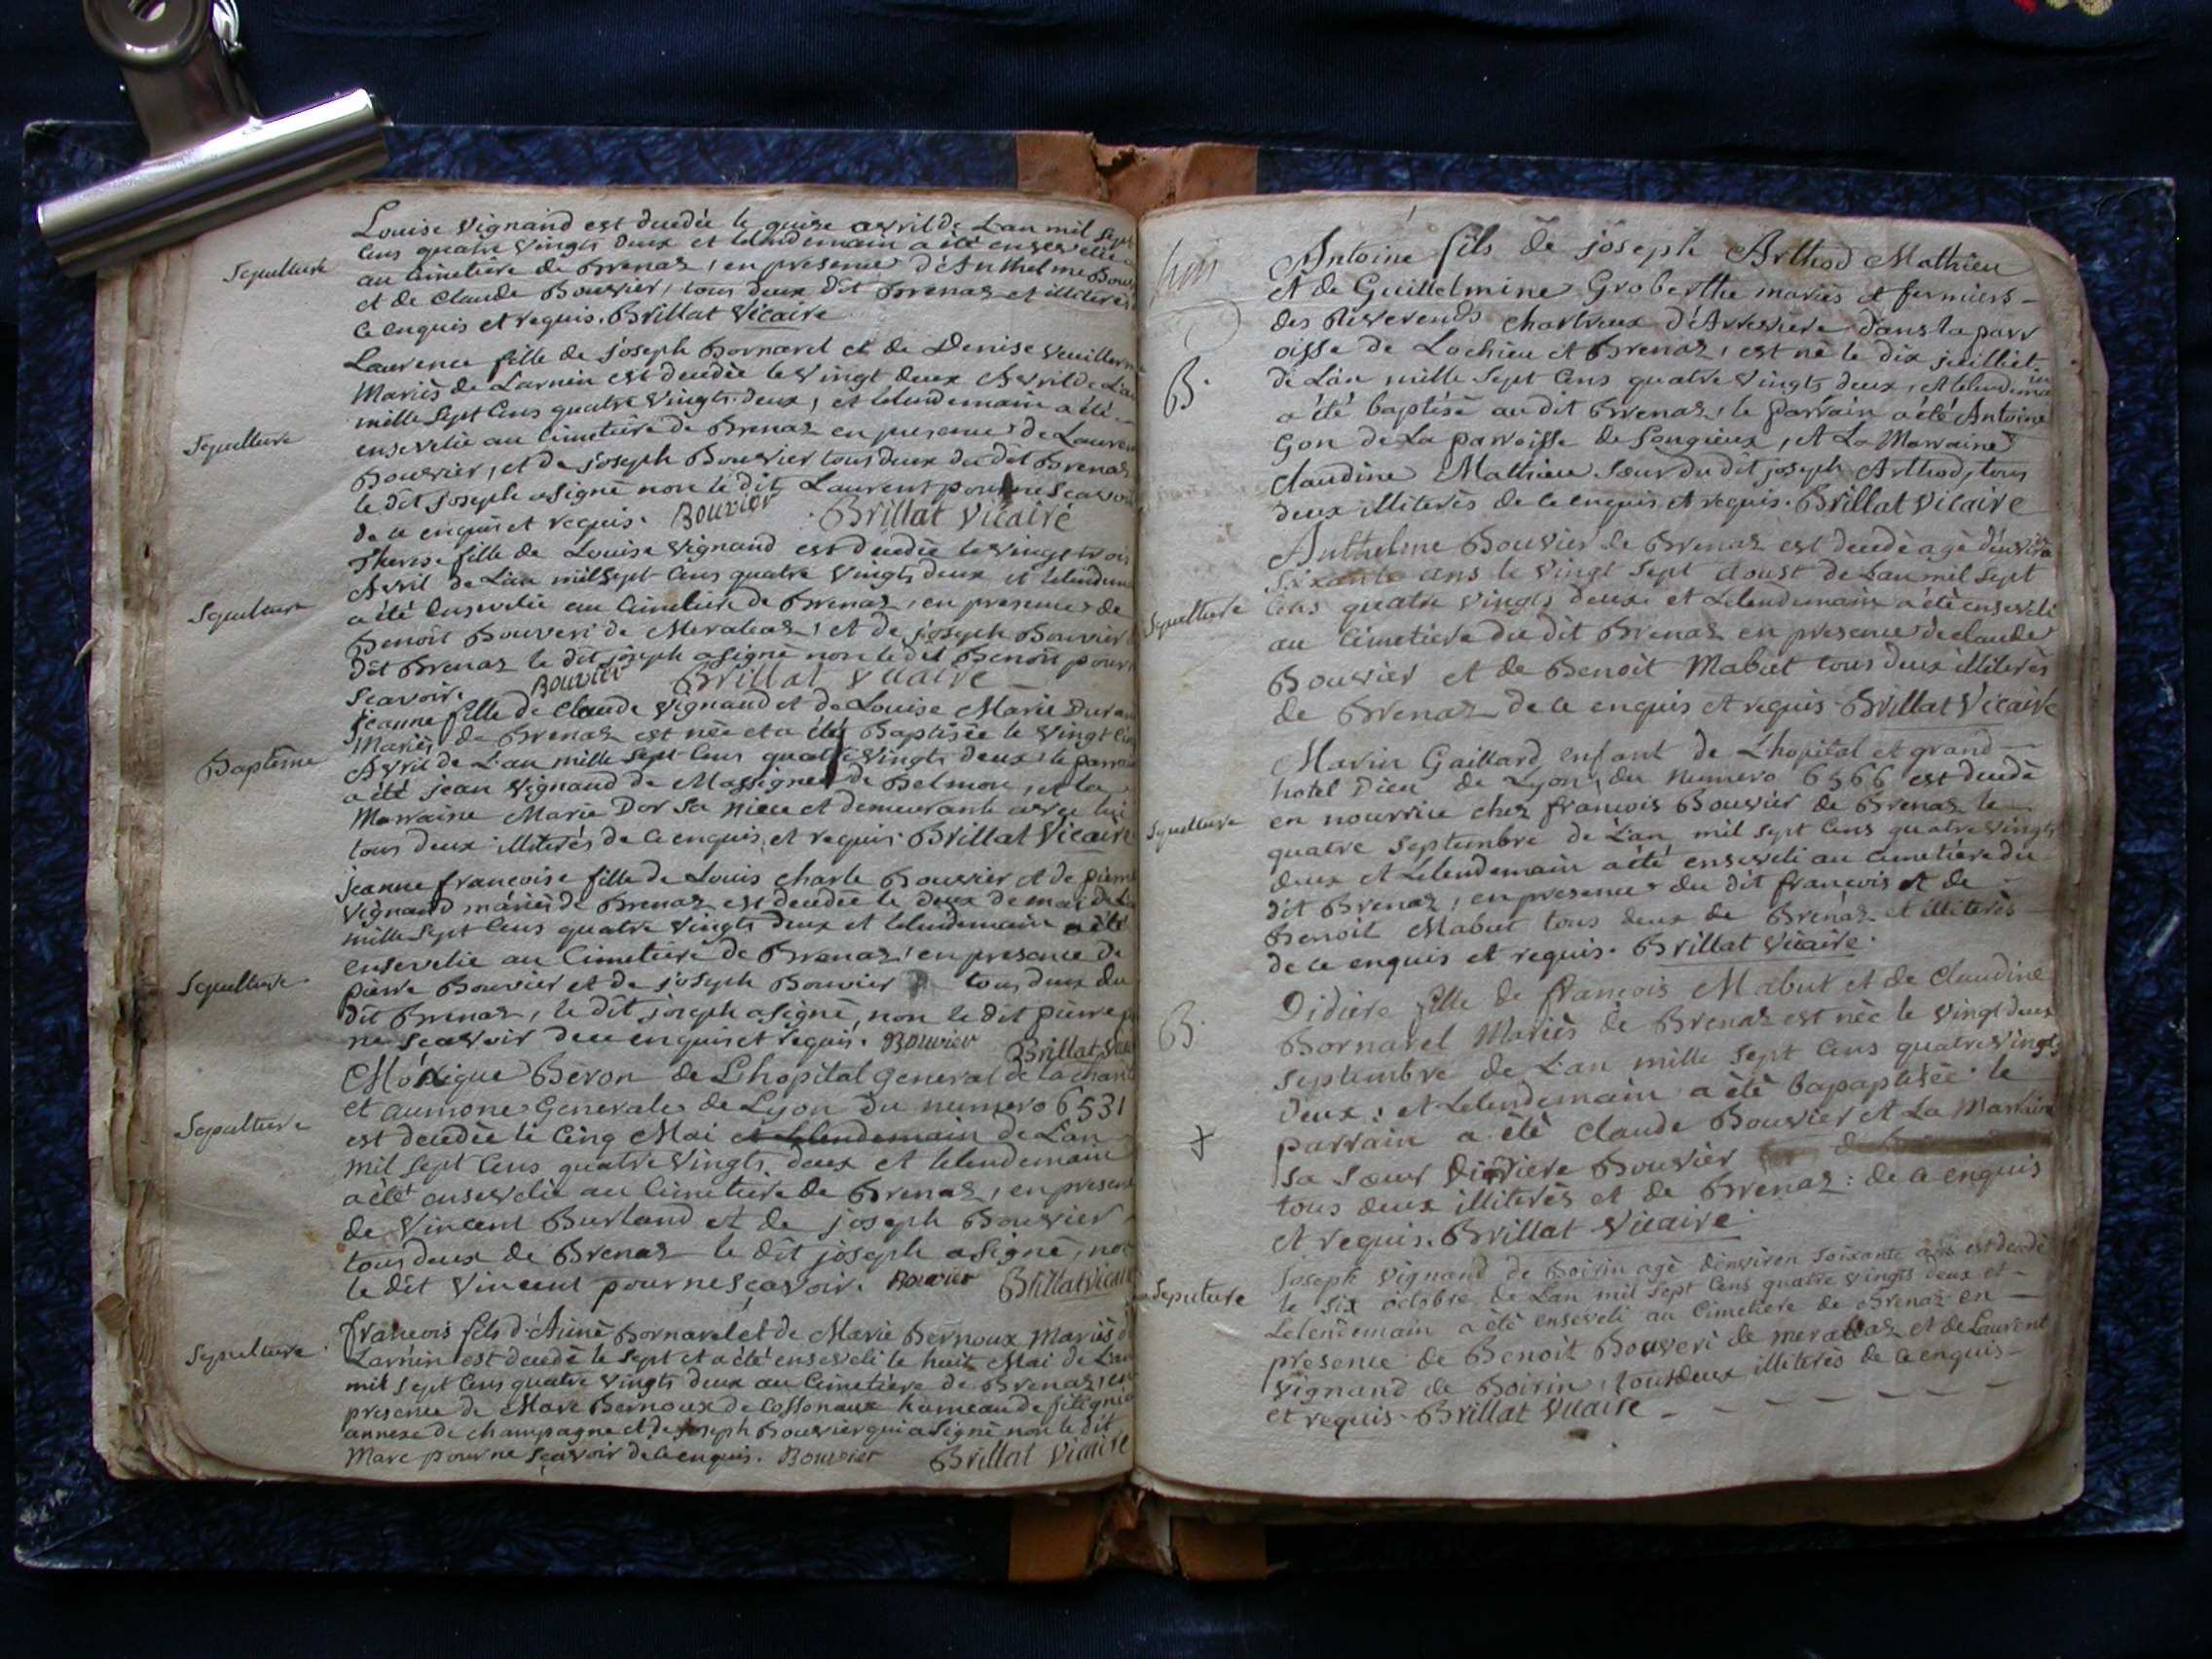 Louise Vignand est decedée le quise avril de L'an mil sept
Cens quatre Vingts Deux et lelendemain a été ensevelie
Sepulture
au Cimetière de Brenaz, en presence d'Anthelme Bouv
et de Claude Bouvier, tous deux dit Brenaz et illiterés
ce enquis et requis. Brillat Vicaire
Laurence fille de joseph Bornarel et de Denise
Mariés de Larnin est decedée le Vingt deux Avril de L'an
mille Sept Cens quatre Vingts deux, et lelendemain a été
Sepulture
ensevelie au Cimetière de Brenaz en presence de Laurent
Bouvier, et de joseph Bouvier tous deux du dit Brenaz
le dit joseph a signé non le dit Laurent pour ne scavoir
de ce enquis et requis. Bouvier Brillat Vicaire
Therese fille de Louise Vignand est decedée le Vingt trois
Avril de L'an mil sept Cens quatre Vingts deux et lelendem
Sepulture
a été Ensevelie au Cimetière de Brenaz, en presence de
Benoit Bouveri de Meraleaz, et de joseph Bouvier
dit Brenaz le dit joseph a signé non le dit Benoit pour
Scavoir. Bouvier Brillat Vicaire
Jeanne fille de Claude Vignand et de Louise Marie Duran
Mariés de Brenaz est née et a été Baptisée le Vingt cin
Baptême
Avril de L'an mille Sept Cens quatre Vingts deux le parrai
a été jean Vignand de Massignet de Belmon, et la
Marraine Marie Dor sa niece et demeurante avec lui
tous deux illiterés de ce enquis, et requis. Brillat Vicaire
jeanne francoise fille de Louis charle Bouvier et de pierre
Vignand mariés de Brenaz est decedée le deux de mai de L'
mille Sept Cens quatre Vingts deux et lelendemain a été
ensevelie au Cimetière de Brenaz, en presence de
Sepulture
pierre Bouvier et de joseph Bouvier tous deux du
dit Brenaz, le dit joseph a signé, non le dit pierre p
ne scavoir de ce enquis et requis. Bouvier Brillat Vicai
Monique Beron de L'hopital general de la chari
et aumone Generale de Lyon du numero 6531
Sepulture
est decedée le Cinq Mai et lelendemain de L'an
mil Sept Cens quatre Vingts deux et lelendemain
a été ensevelie au Cimetière de Brenaz, en presence
de Vincent Burland et de joseph Bouvier
tous deux de Brenaz le dit joseph a signé, non
le dit Vincent pour ne scavoir. Bouvier Brillat Vicaire
francois fils d'Aimé Bornarel et de Marie Bernoux Mariés d
Sepulture
Larnin est decedé le Sept et a été enseveli le huit Mai de L'an
mil Sept Cens quatre Vingts deux au Cimetière de Brenaz, en
presence de Marc Bernoux de Cossonaux hameau de fitignie
annexe de champagne et de joseph Bouvier qui a signé non le dit
Marc pour ne scavoir de ce enquis. Bouvier Brillat Vicaire
Antoine fils de joseph Arthod Mathieu
et de Guillelmine Groberthe mariés et fermiers
des Reverends chartreux d'Arvieres dans la parr
oisse de Lochieu et Brenaz, est né le dix juilliet
B.
de L'an mille Sept Cens quatre Vingts deux, et lelendemain
a été baptisé au dit Brenaz, le parrain a été Antoine
Gon de La parroisse de Songieux, et La Marraine
claudine Mathieu Sœur du dit joseph Arthod, tous
deux illiterés de ce enquis et requis. Brillat Vicaire
Anthelme Bouvier de Brenaz est decedé agé d'enviro
Sixante ans le Vingt Sept d'oust de L'an mil Sept
Sepulture
Cens quatre Vingts deux et Lelendemain a été enseveli
au Cimetière du dit Brenaz en presence de claude
Bouvier et de Benoit Mabut tous deux illiterés
de Brenaz de ce enquis et requis Brillat Vicaire
Marin Gaillard enfant de L'hopital et grand
hotel Dieu de Lyon, du numero 6566 est decedé
Sepulture
en nourrice chez francois Bouvier de Brenaz le
quatre Septembre de L'an mil Sept Cens quatre Vingts
deux et Lelendemain a été enseveli au cimetière du
dit Brenaz, en presence du dit francois et de
Benoit Mabut tous deux de Brenaz et illiterés
de ce enquis et requis. Brillat Vicaire.
Didiere fille de francois Mabut et de Claudine
B.
Bornarel Mariés de Brenaz est née le Vingt deux
Septembre de L'an mille Sept Cens quatre Vingts
Deux, et Lelendemain a été bapaptisée. le
parrain a été Claude Bouvier et La Marraine
Sa Sœur Didiere Bouvier
tous deux illiterés et de Brenaz: de ce enquis
et requis. Brillat Vicaire.
Joseph Vignand de Boirin agé d'environ soixante ans est decedé
Seputure
le six octobre de L'an mil Sept Cens quatre Vingts deux et
Lelendemain a été enseveli au Cimetiere de Brenaz en
presence de Benoit Bouveri de meraleaz et de Laurent
Vignand de Boirin, tous deux illiterés de ce enquis
et requis. Brillat Vicaire